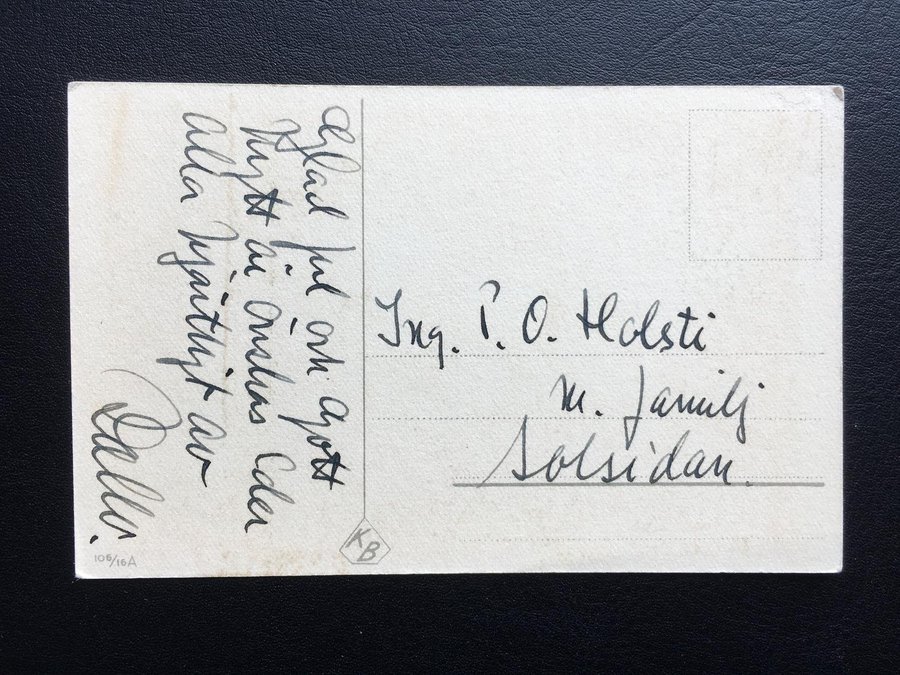 Glad jul och Gott
Nytt år önskas Eder
alla hjärtligt av
Ing. P. O. Holsti
m. Familj
Solsidan.
KB
106/16A